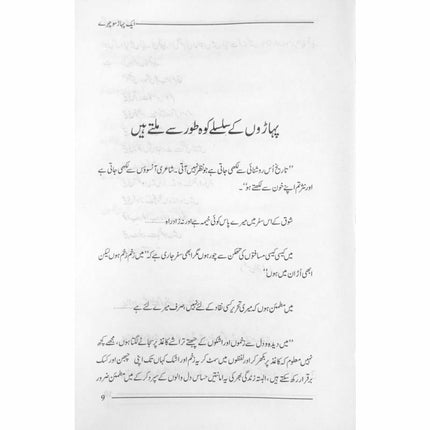 ایک پہاڑ سو چہرے
پہاڑوں کے سلسلے کوہ طور سے ملتے ہیں
’’تاریخ اُس روشنائی سے لکھی جاتی ہے جو نظر نہیں آتی۔ شاعری آنسوؤں سے لکھی جاتی ہے
اور نثر تم اپنے خون سے لکھتے ہو‘‘۔
شوق کے اس سفر میں میرے پاس کوئی خیمہ ہے اور نہ زادِ راہ .........
میں کیسی کیسی مسافتوں کی تھکن سے چور ہوں مگر ابھی سفر جاری ہے کہ ’’میں زخم زخم ہوں لیکن
ابھی اُڑان میں ہوں‘‘
میں مطمئن ہوں کہ میری تحریر کسی نقاد کے لئے نہیں، صرف میرے لئے ہے .........
’’میں دیدہ و دل سے زخموں اور اشکوں کے چبھتے تراشے کاغذ پر سجانے لگتا ہوں، مجھے کچھ
نہیں معلوم کہ کاغذ پر بکھر کر اور لفظوں میں سمٹ کر یہ زخم اور اشک کہاں تک اپنی چبھن اور کسک
برقرار رکھ سکتے ہیں، البتہ زندگی بھر کی یہ امانتیں حساس دل والوں کے سپرد کر کے میں مطمئن ضرور
9